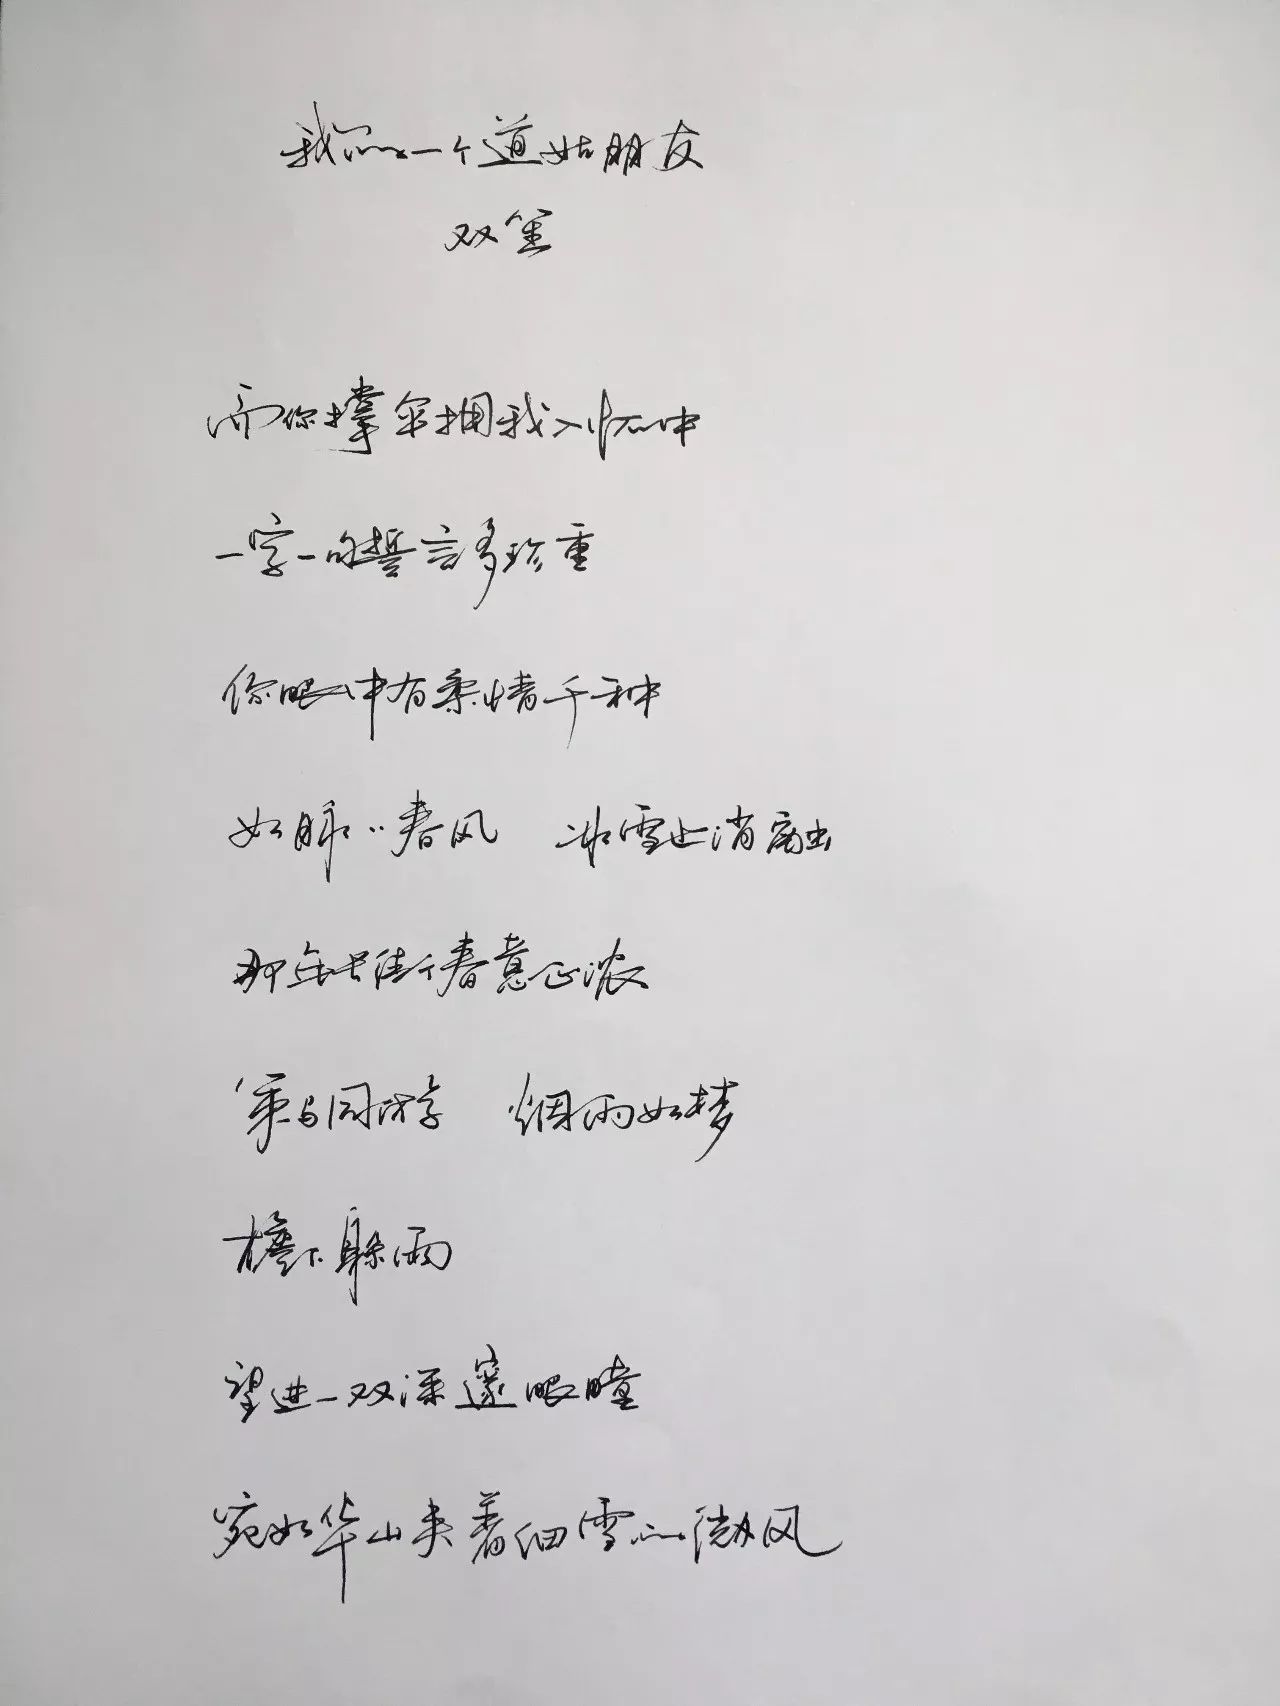 我的一个道姑朋友
双笙
而你撑伞拥我入怀中
一字一句誓言多珍重
你眼中有柔情千种
如脉脉春风 冰雪也消融
那年长街春意正浓
策马同游 烟雨如梦
檐下躲雨
望进一双深邃眼瞳
宛如华山夹着细雪的微风